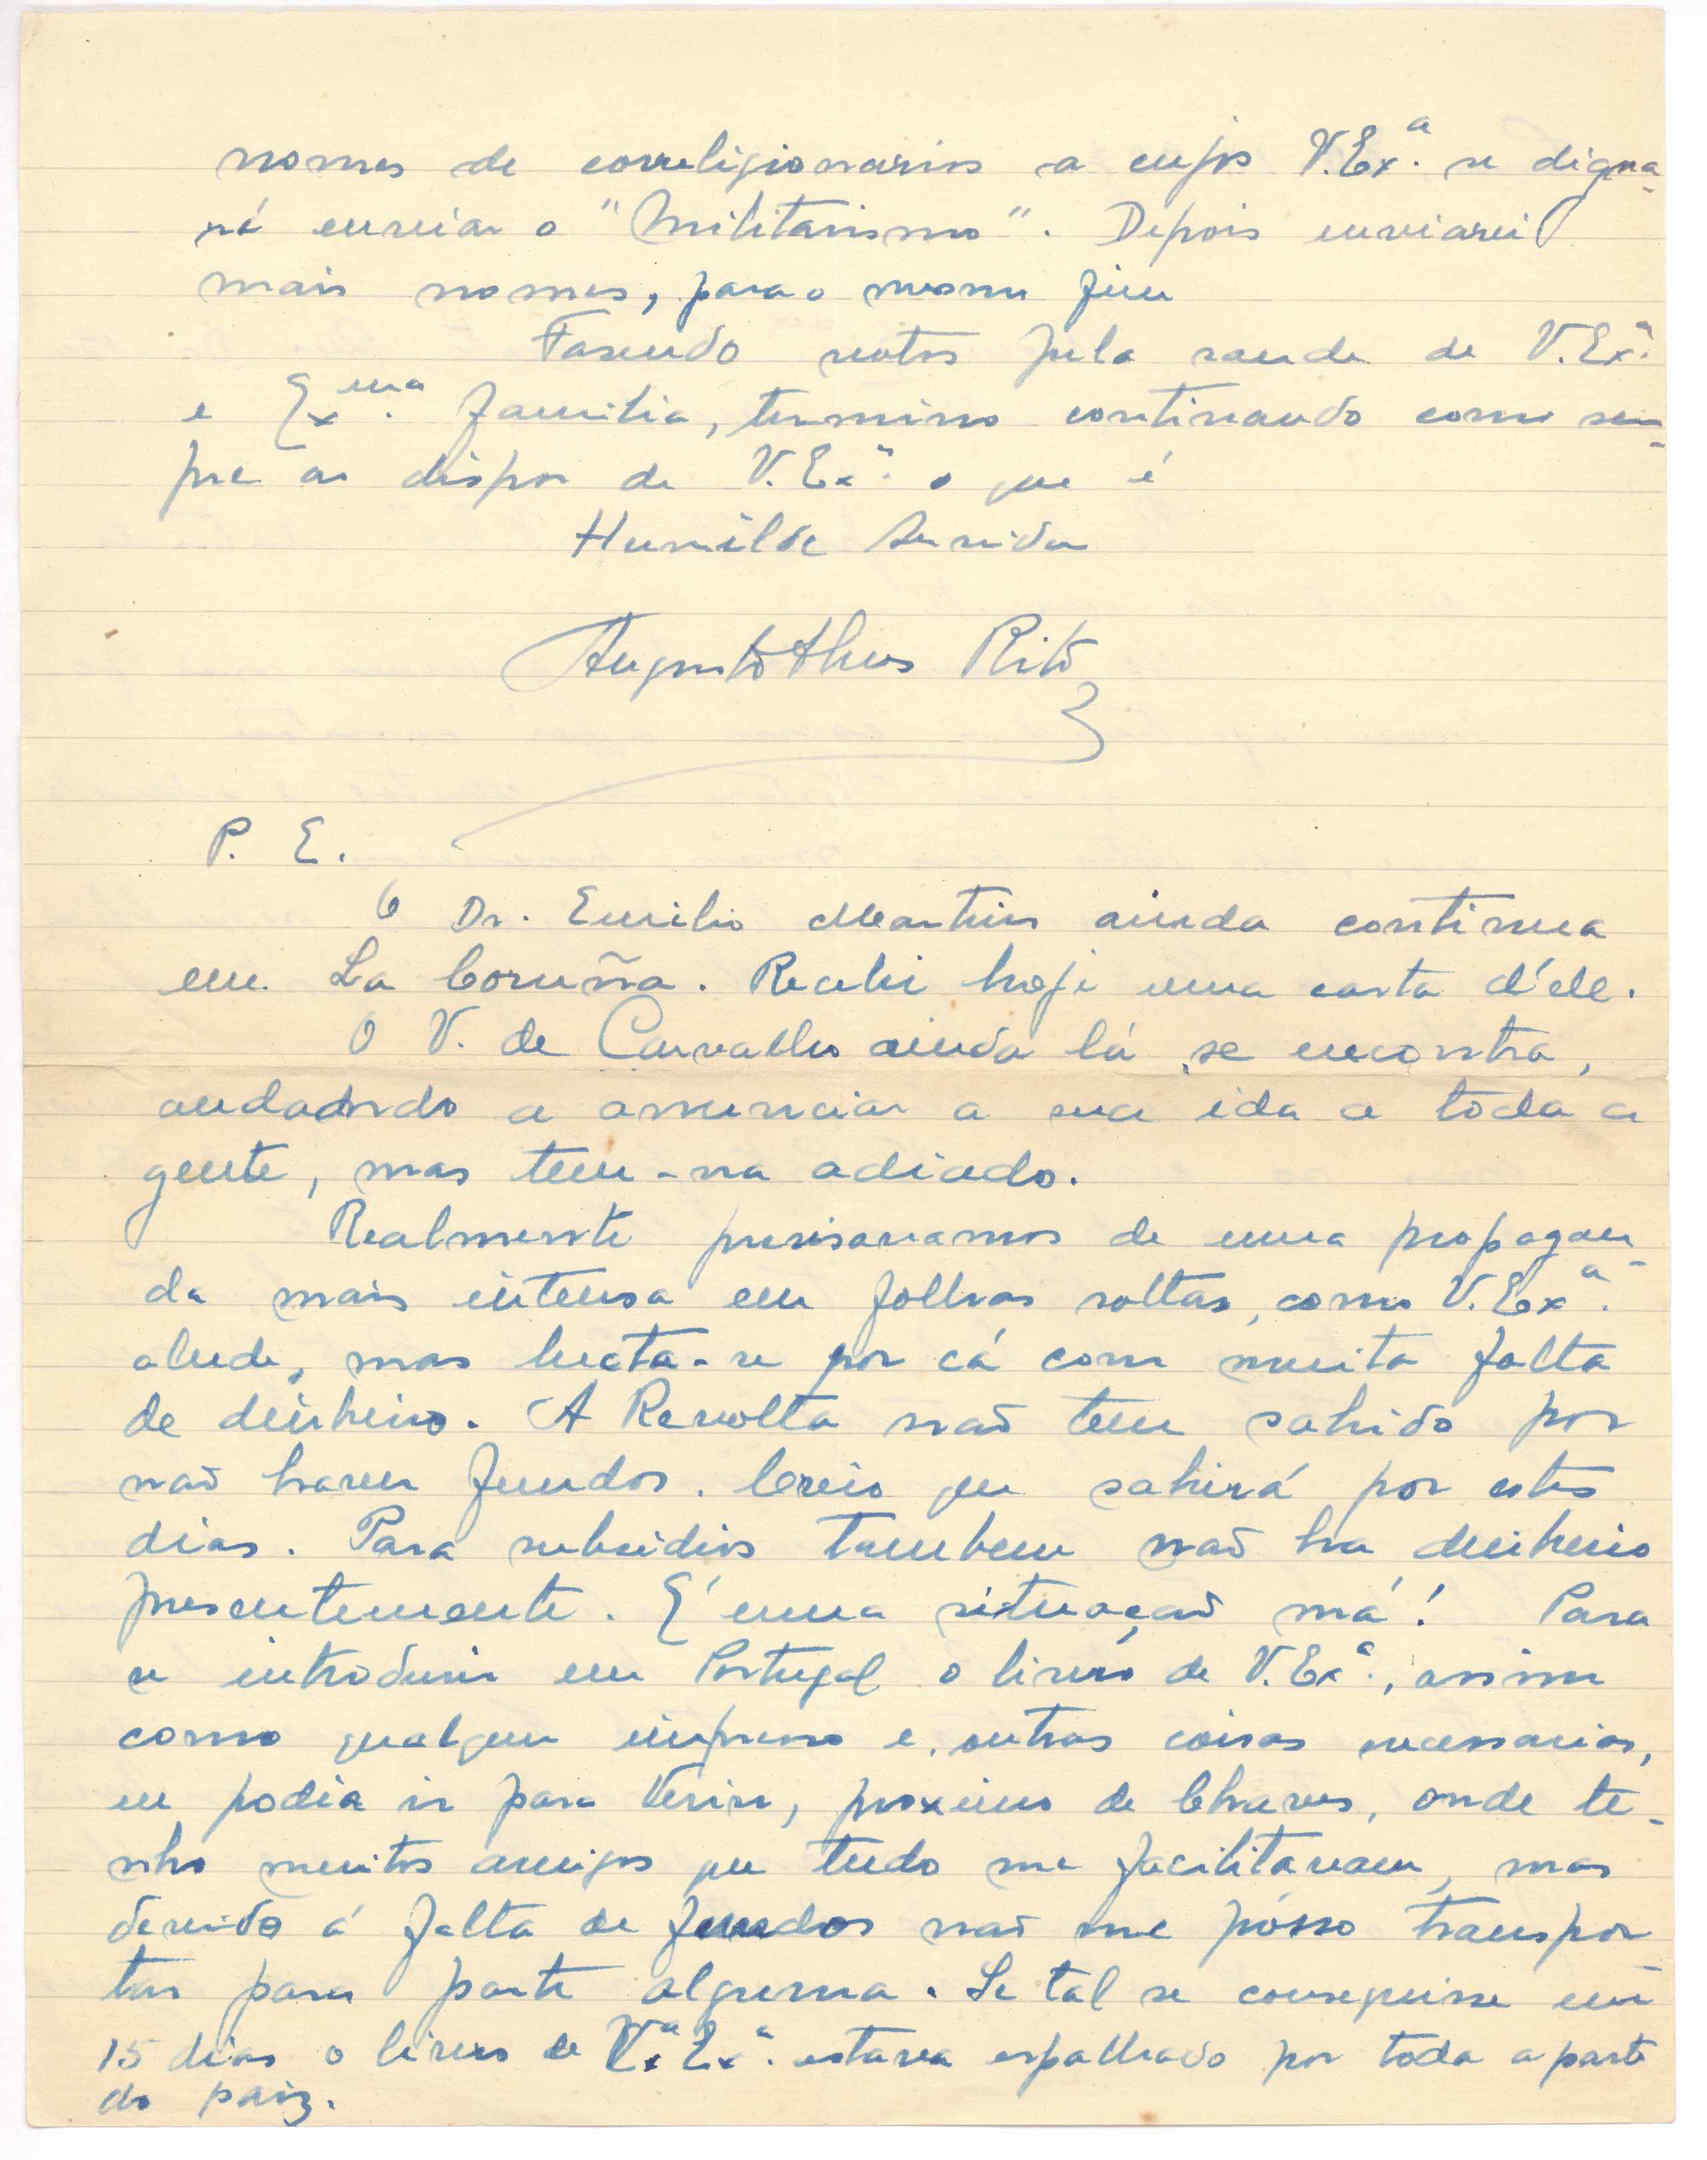 nomes de correligionarios a cujos V.Exª. se digna-
rá enviar o "Militarismo". Depois enviarei
mais nomes, para o mesmo fim
Fasendo votos pela saude de V.Exª.
e Exma. familia, termino continando como sem-
pre ao dispor de V.Exª. o que é
Humilde Servidor
Augusto Rito
P. E.
O Dr. Emilio Martins ainda continua
em La Coruña. Recebi hoje uma carta d'ele.
O V. de Carvalho ainda lá se encontra,
andando a anunciar a sua ida a toda a
gente, mas tem-na adiado.
Realmente precisavamos de uma propagan-
da mais intensa em folhas soltas, como V.Exª.
alude, mas lucta-se por cá com muita falta
de dinheiro. A Revolta naõ tem sahido por
naõ haver fundos. Creio que sahirá por estes
dias. Para subsidios tambem naõ ha dinheiro
presentemente. E' uma situaçaõ má! Para
se introdusir em Portugal o livro de V.Exª., assim
como qualquer impresso e outras coisas necessarias,
eu podia ir para Verin, proximo de Chaves, onde te-
nho muitos amigos que tudo me facilitavam, mas
devido á falta de fundos naõ me pósso transpor-
tar para parte alguma. Se tal se conseguisse em
15 dias o livro de V.ª Exª. estava espalhado por toda a parte
do paiz.